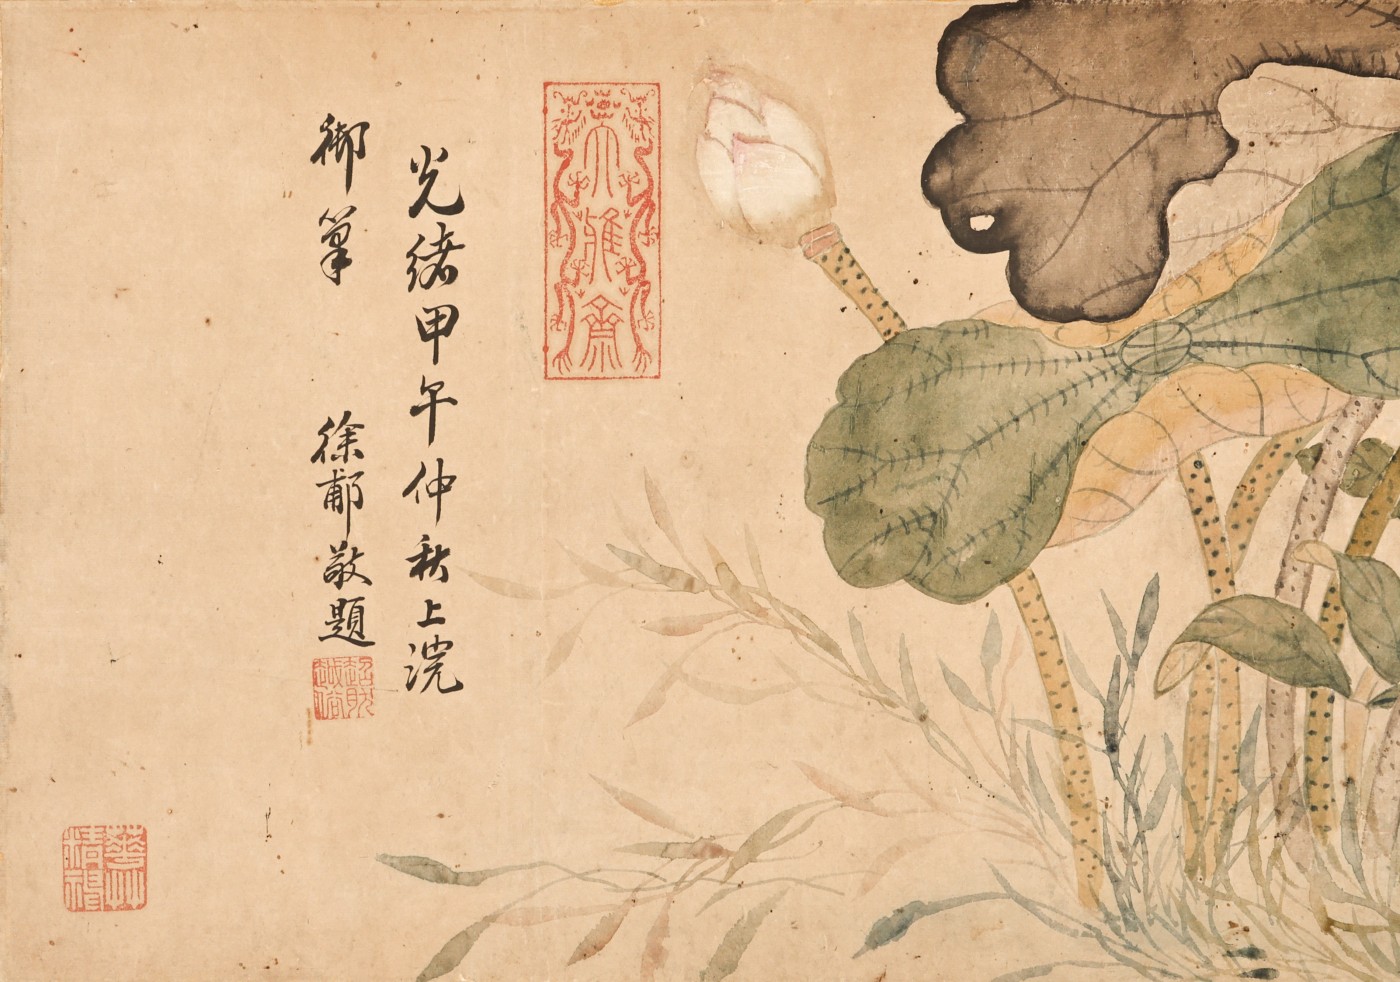 大雅齋
光緒甲午仲秋上浣
御筆 徐郙敬題